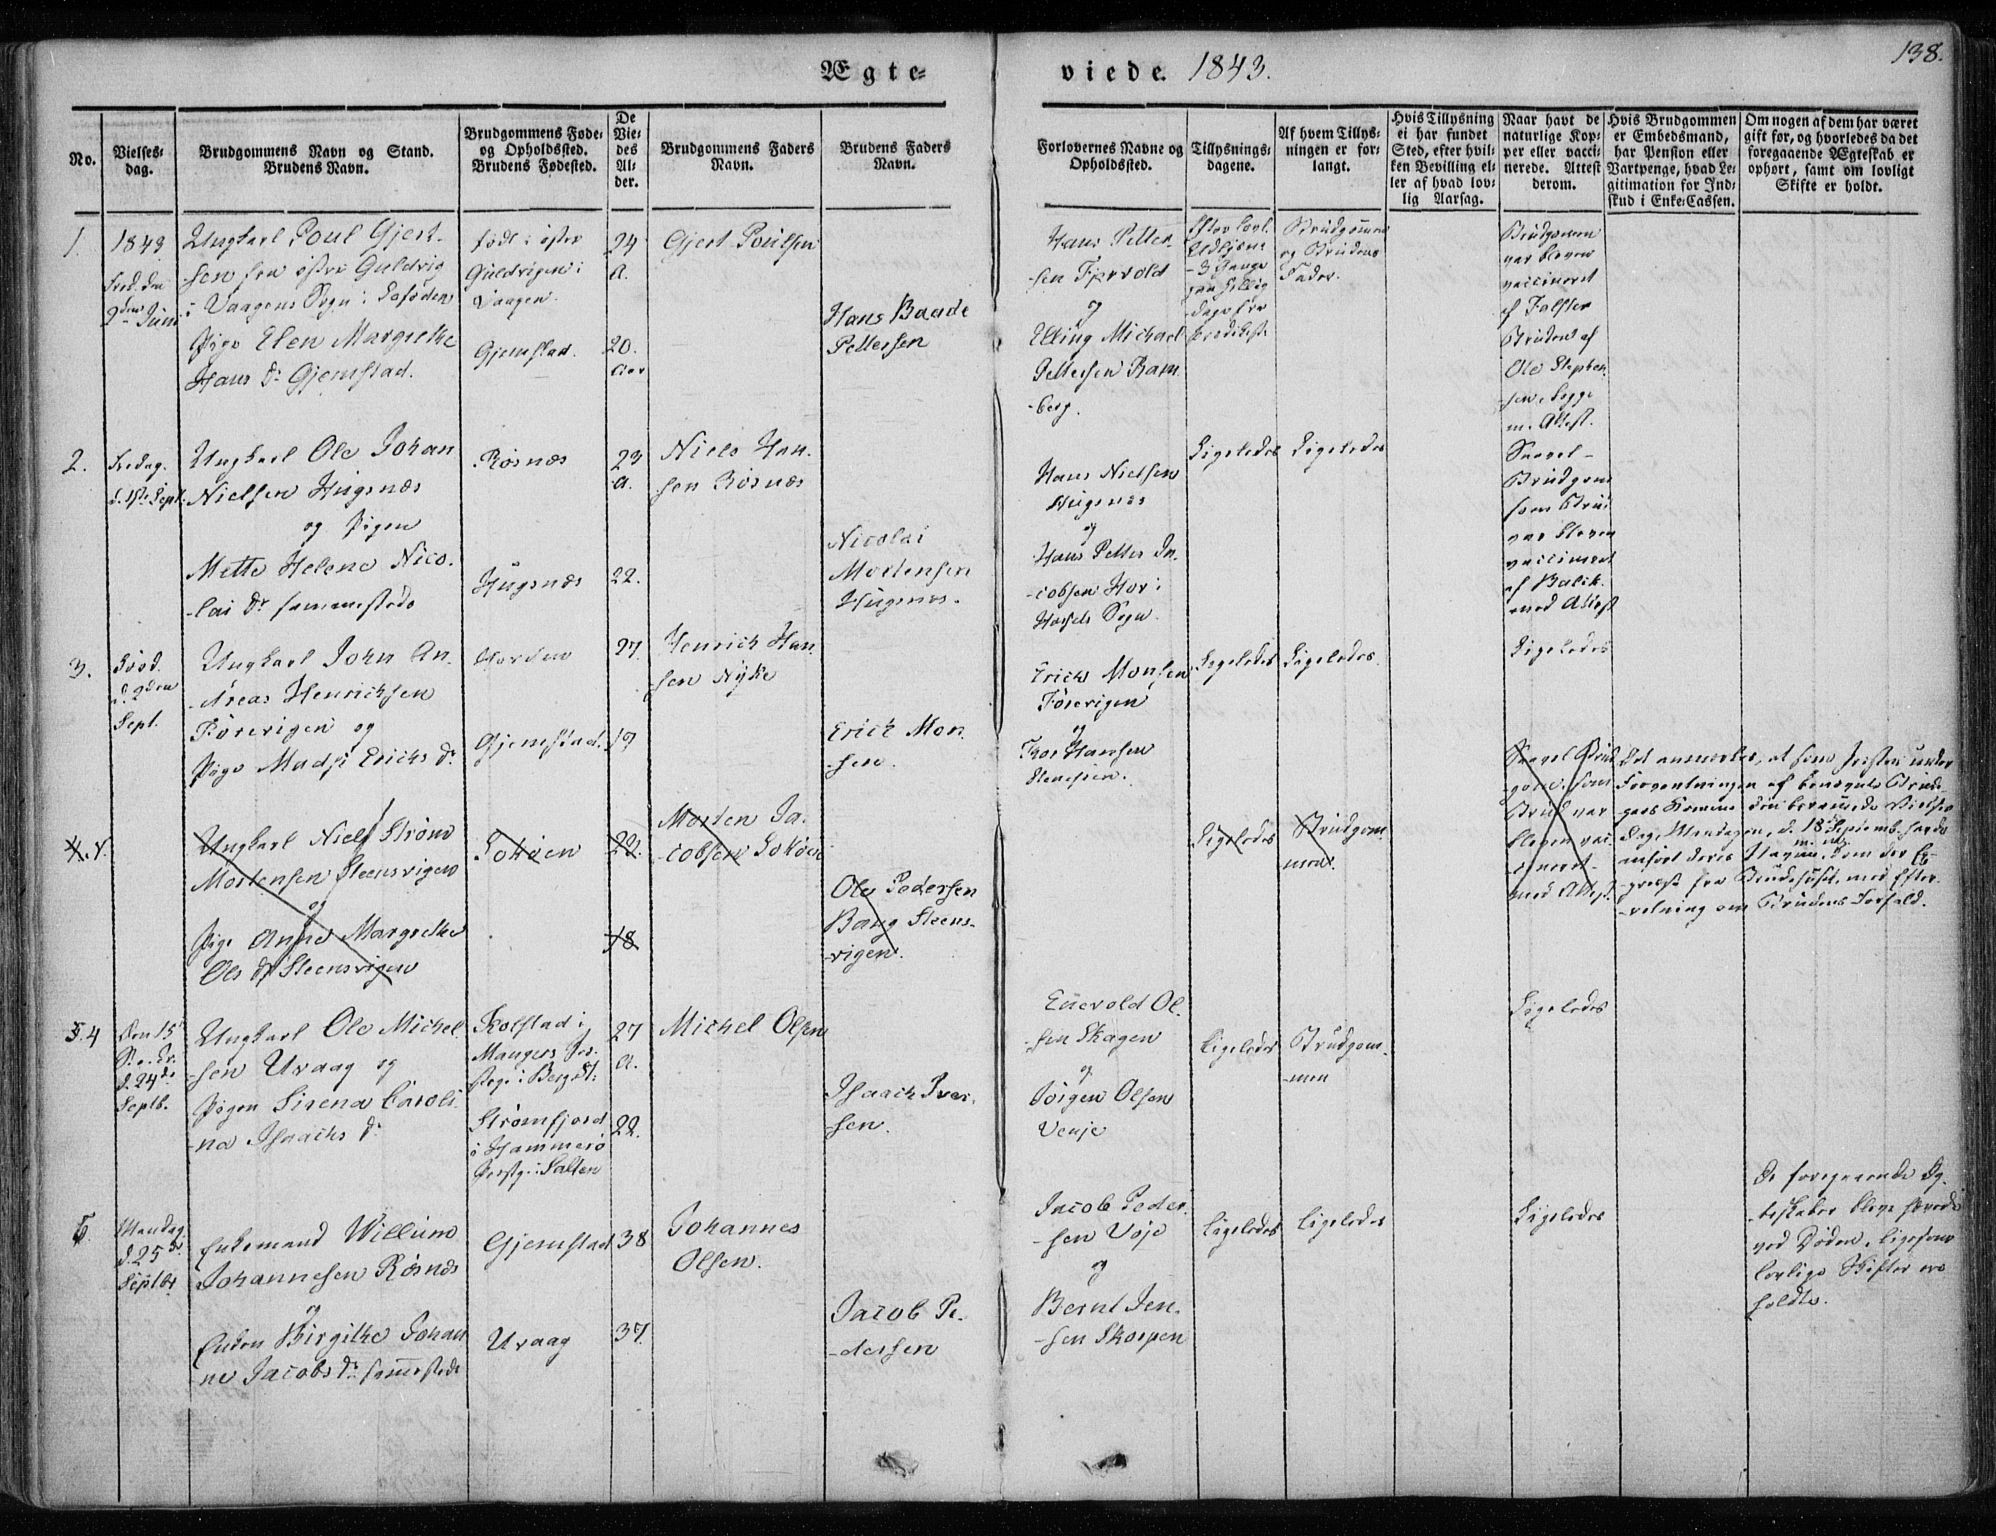 138.
Ægte- viede. 1843.
No.
Vielses-
dag.
Brudgommens Navn og Stand.
Brudens Navn.
Brudgommens Føde-
og Opholdssted.
Brudens Fødested.
De
Vie-
des
Al-
der.
Brudgommens Faders
Navn.
Brudens Faders
Navn.
Forlovernes Navne og
Opholdssted.
Tillysnings-
dagene.
Af hvem Tillys-
ningen er for-
langt.
Hvis Tillysning
ei har fundet
Sted, efter hvil-
ken Bevilling el-
ler af hvad lov-
lig Aarsag.
Naar havt de
naturlige Kop-
per eller vacci-
nerede. Attest
derom.
Hvis Brudgommen
er Embedsmand,
har Pension eller
Vartpenge, hvad Le-
gitimation for Ind-
skud i Enke-Cassen.
Om nogen af dem har været
gift før, og hvorledes da det
foregaaende Ægteskab er
ophørt, samt om lovligt
Skifte er holdt.
1.
1843
2den Juni
Ungkarl Poul Gjert-
sen fra østre Guldvig
i Vaagens Sogn i Lofoden
Pige Elen Margrethe
Hans Dr Gjemstad.
født i østre
Guldvigen i
Vaagen.
Gjemstad.
24
A.
20.
Aar
Gjert Poulsen
Hans Baade
Pettersen
Hans Petter-
sen Fprvold
og
Elling Michael
Pettersen Ram-
berg.
Brudgommen
og Brudens
Fader.
Brudgommen
var bleven
vaccineret
af Falster
Bruden af
Ole Stephen-
sen, begge
m. Attest.
2.
Fredag.
d. 1ste Sept.
Ungkarl Ole Johan
Nielsen Hugsnæs
og Pigen
Mette Helene Nico-
lai Dr sammesteds
Røsnæs
Hugsnæs
23
A.
22.
Niels Han-
sen Røsnæs
Nicolai
Mortensen
Hugsnes.
Hans Nielsen
Hugsnæs
og
Hans Petter Ja-
cobsen Hov i
Hassels Sogn.
Ligeledes
Ligeledes
Saavel
Brudgom
som Brud
var bleven
vaccineret
af Balik
med Attest
3.
d. 2den
Sept.
Ungkarl John An-
dreas Henrichsen
Førevigen og
Pige Madsi Erichs Dr
Gjemstad.
27.
19
Henrich Han-
sen Nyke
Erich Mon-
sen.
Erich Monsen
Førevigen
og
Hansen
Ligeledes
Ligeledes.
Ligeledes
4.
Ungkarl Niels Strøm
Mortensen Steensvigen
og
Pige Anne Margrethe
Ols Dr Steensvigen
Lokøen
22.
18
Morten Ja-
cobsen Lokøen
Ole Pedersen
Bang Steens-
vigen.
Ligeledes
Brudgom-
men.
Saavel Brud-
gom. som
Brud var
bleven vac-
cineret
med Attest.
Det anmærkes, at som Præsten under
Forventningen af benævnte Brude-
pars Komme den berammede Vielses
Dag, Mandagen d. 18 Septemb. havde
anført deres Navne,
fra Brudehuset, med Efter-
retning om Brudens Forfald.
5. 4
Den 15
d. 24de
Septb.
Ungkarl Ole Michel-
sen Uvaag og
Pigen Sirena Caroli-
na Isaachs Dr
Kolstad i
Mangers Præ-
steg. i Berg. St.
Strømfjord
i Hammerø
Præstg. i Salten
27
A.
22.
Michel Olsen
Isaach Iver-
sen.
Enevold Ol-
sen Skagen
og
Jørgen Olsen
Venje
Ligeledes
Brudgom-
men
Ligeledes
5.
Mandag
d. 25de
Septbr.
Enkemand Willum
Johannesen Røsnæs
og
Enken Birgithe Johan-
ne Jacobs Dr sammesteds
Gjemstad
Uvaag
38
37.
Johannes
Olsen.
Jacob Pe-
dersen
Jacob Peder-
sen Vøje
og
Bernt Jen-
sen Skorpen
Ligeledes
Ligeledes
Ligeledes
De foregaaende Æg-
teskaber bleve hævede
ved Døden, ligesom
lovlige Skifter ere
holdte.